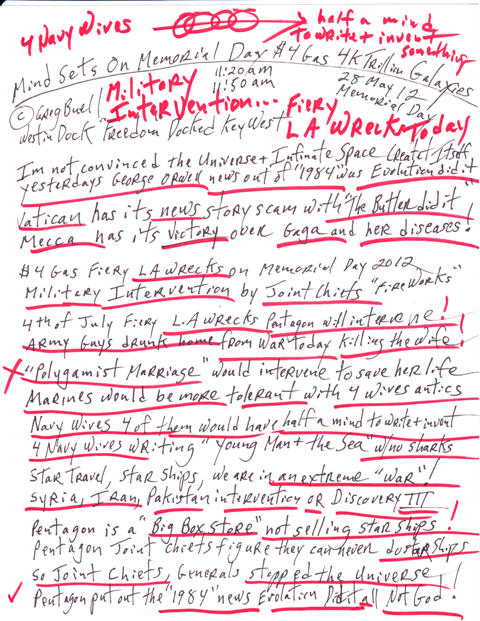 4 Navy Wives
half a mind
to write + invent
something
Mind Sets On Memorial Day $4 Gas 4K Trillion Galaxies
Military 11:20am 28 May 12
Intervention... 11:50am Memorial Day
© Greg Buell Fiery
Westin Dock "Freedom Docked Key West LA Wrecks Today
I'm not convinced the Universe + Infinate Space Creatd Itself
yesterdays George Orwell news out of "1984" was Evolution did it
Vatican has its news story scam with "The Buttler did it"!
Mecca has its victory over Gaga and her diseases!
$4 Gas Fiery LA Wrecks on Memorial Day 2012
Military Intervention by Joint Chiefs "Fireworks"
4th of July Fiery L.A wrecks Pentagon will intervene!
Army Guys drunk home from War today killing the wife!
X "Polygamist Marriage" would intervene to save her life
Marines would be more tolerant with 4 wives antics
Navy Wives 4 of them would have half a mind to write + invent
4 Navy Wives writing "Young Man + the Sea" w/no sharks
Star Travel, Star Ships, we are in an extreme "War"!
Syria, Iran, Pakistan intervention or Discovery III
Pentagon is a "Big Box Store" not selling star ships!
Pentagon Joint Chiefs figure they can never do starships
so Joint Chiefs, Generals stopped the Universe!
✓ Pentagon put out the "1984" news Evolation Did it all Not God!